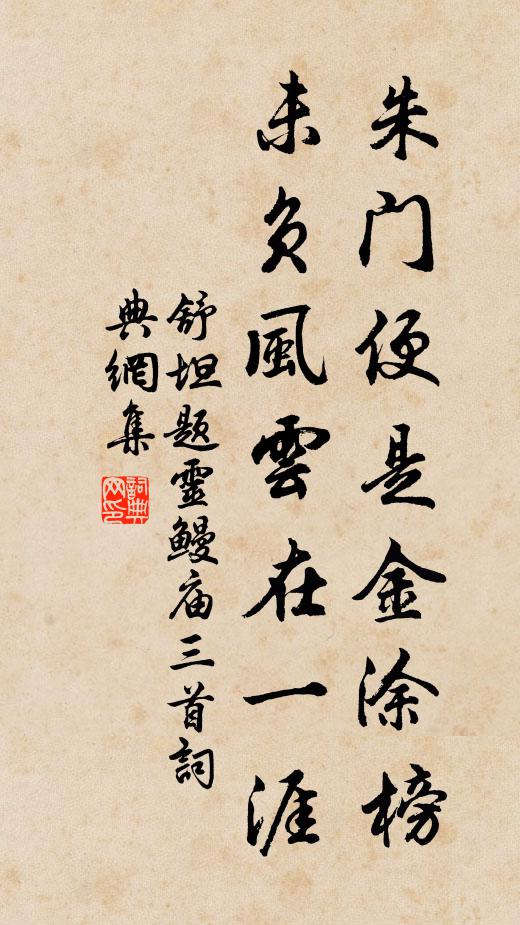 朱门便是金涂榜
未负風雲在一涯
舒坦题靈鳗庙三首詞
典網集
詞典网印